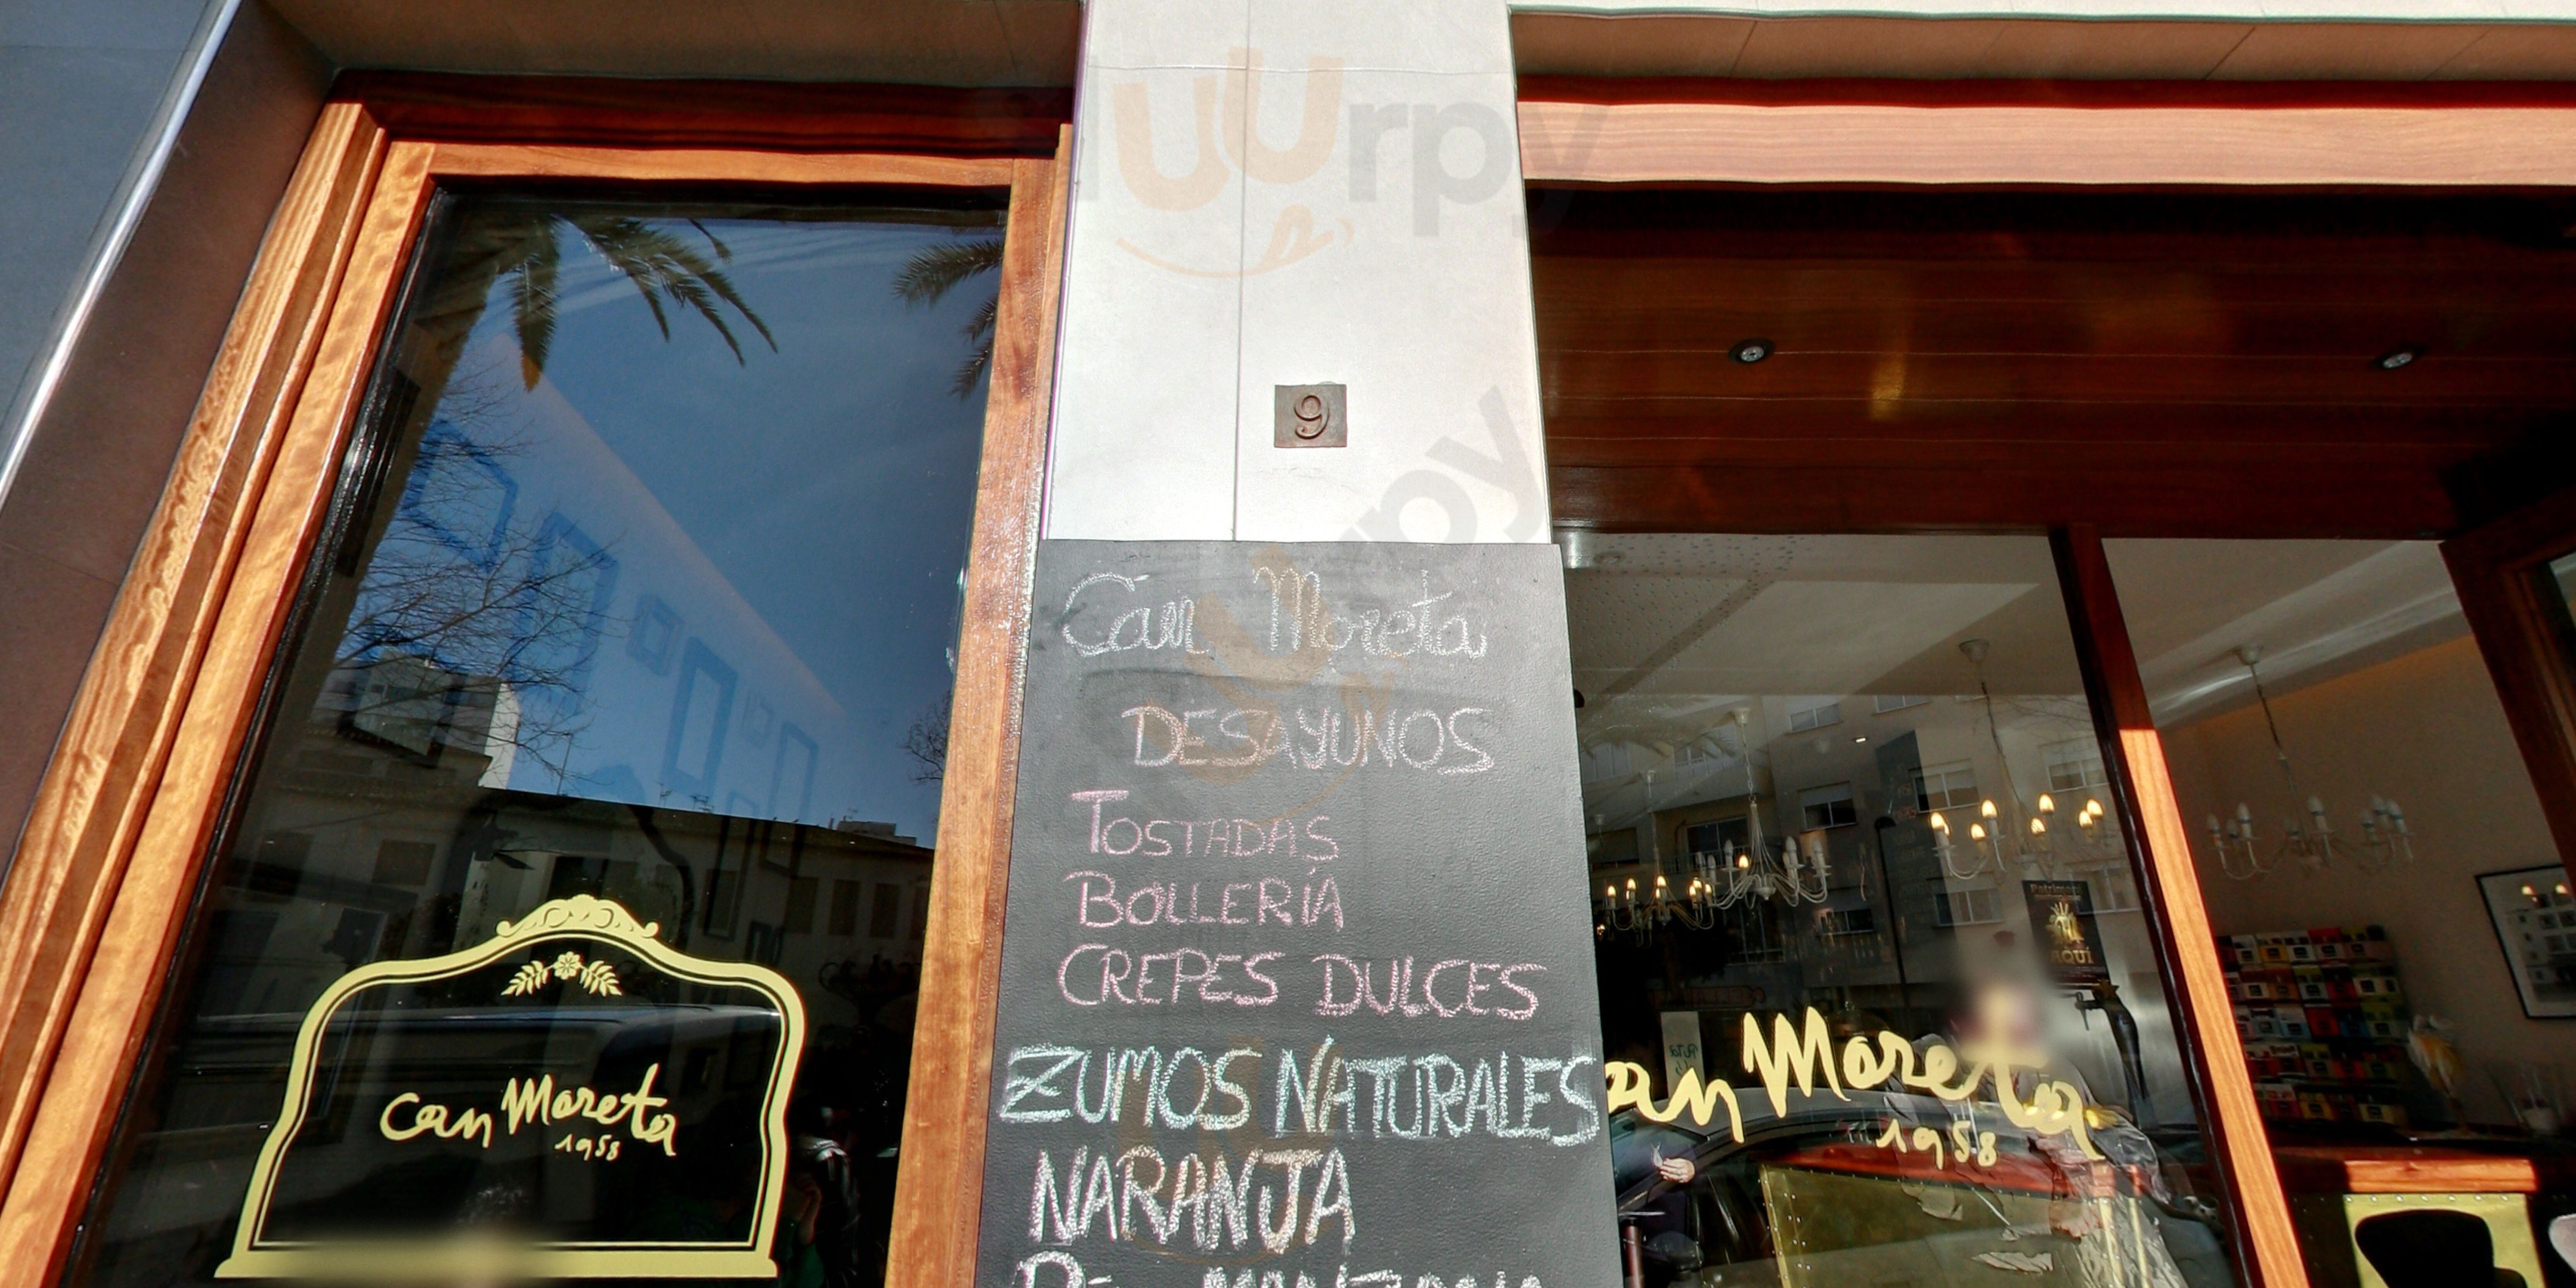 sluurpy
9
sluurpy
Can Moreta
DESAYUNOS
TOSTADAS
BOLLERÍA
CREPES DULCES
ZUMOS NATURALES
NARANJA
can Moreta
1958
an Moreta
1958
Patrimoni
AQUÍ